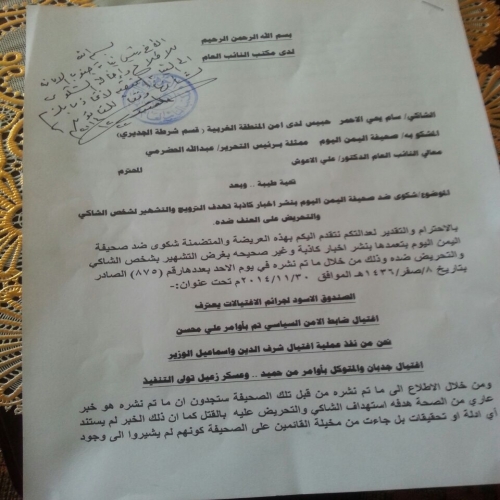 بسم الله الرحمن الرحيم
لدى مكتب النائب العام
بسم الله
الشاكي/ سام يحي الاحمر حبيس لدى امن المنطقة الغربية ( قسم شرطة الجديري)
المشكو به/ صحيفة اليمن اليوم ممثلة برئيس التحرير/ عبدالله الحضرمي
معالي النائب العام الدكتور/ علي الاعوش المحترم
تحية طيبة .. وبعد
الموضوع/شكوى ضد صحيفة اليمن اليوم بنشر اخبار كاذبة تهدف الترويج والتشهير لشخص الشاكي
والتحريض على العنف ضده.
بالاحترام والتقدير لعدالتكم نتقدم اليكم بهذه العريضة والمتضمنة شكوى ضد صحيفة
اليمن اليوم بتعمدها بنشر اخبار كاذبة وغير صحيحه بغرض التشهير بشخص الشاكي
والتحريض ضده وذلك من خلال ما تم نشره في يوم الاحد بعددهارقم (٨٧٥) الصادر
بتاريخ ٨/صفر/١٤٣٦هـ الموافق ٢٠١٤/١١/٣٠م تحت عنوان:-
الصندوق الاسود لجرائم الاغتيالات يعترف
اغتيال ضابط الامن السياسي تم بأوامر علي محسن
نحن من نفذ عملية اغتيال شرف الدين واسماعيل الوزير
اغتيال جدبان والمتوكل بأوامر من حميد .. وعسكر زعيل تولى التنفيذ
ومن خلال الاطلاع الى ما تم نشره من قبل تلك الصحيفة ستجدون ان ما تم نشره هو خبر
عاري من الصحة هدفه استهداف الشاكي والتحريض عليه بالقتل كما ان ذلك الخبر لم يستند
اي ادلة او تحقيقات بل جاءت من مخيلة القائمين على الصحيفة كونهم لم يشيروا الى وجود